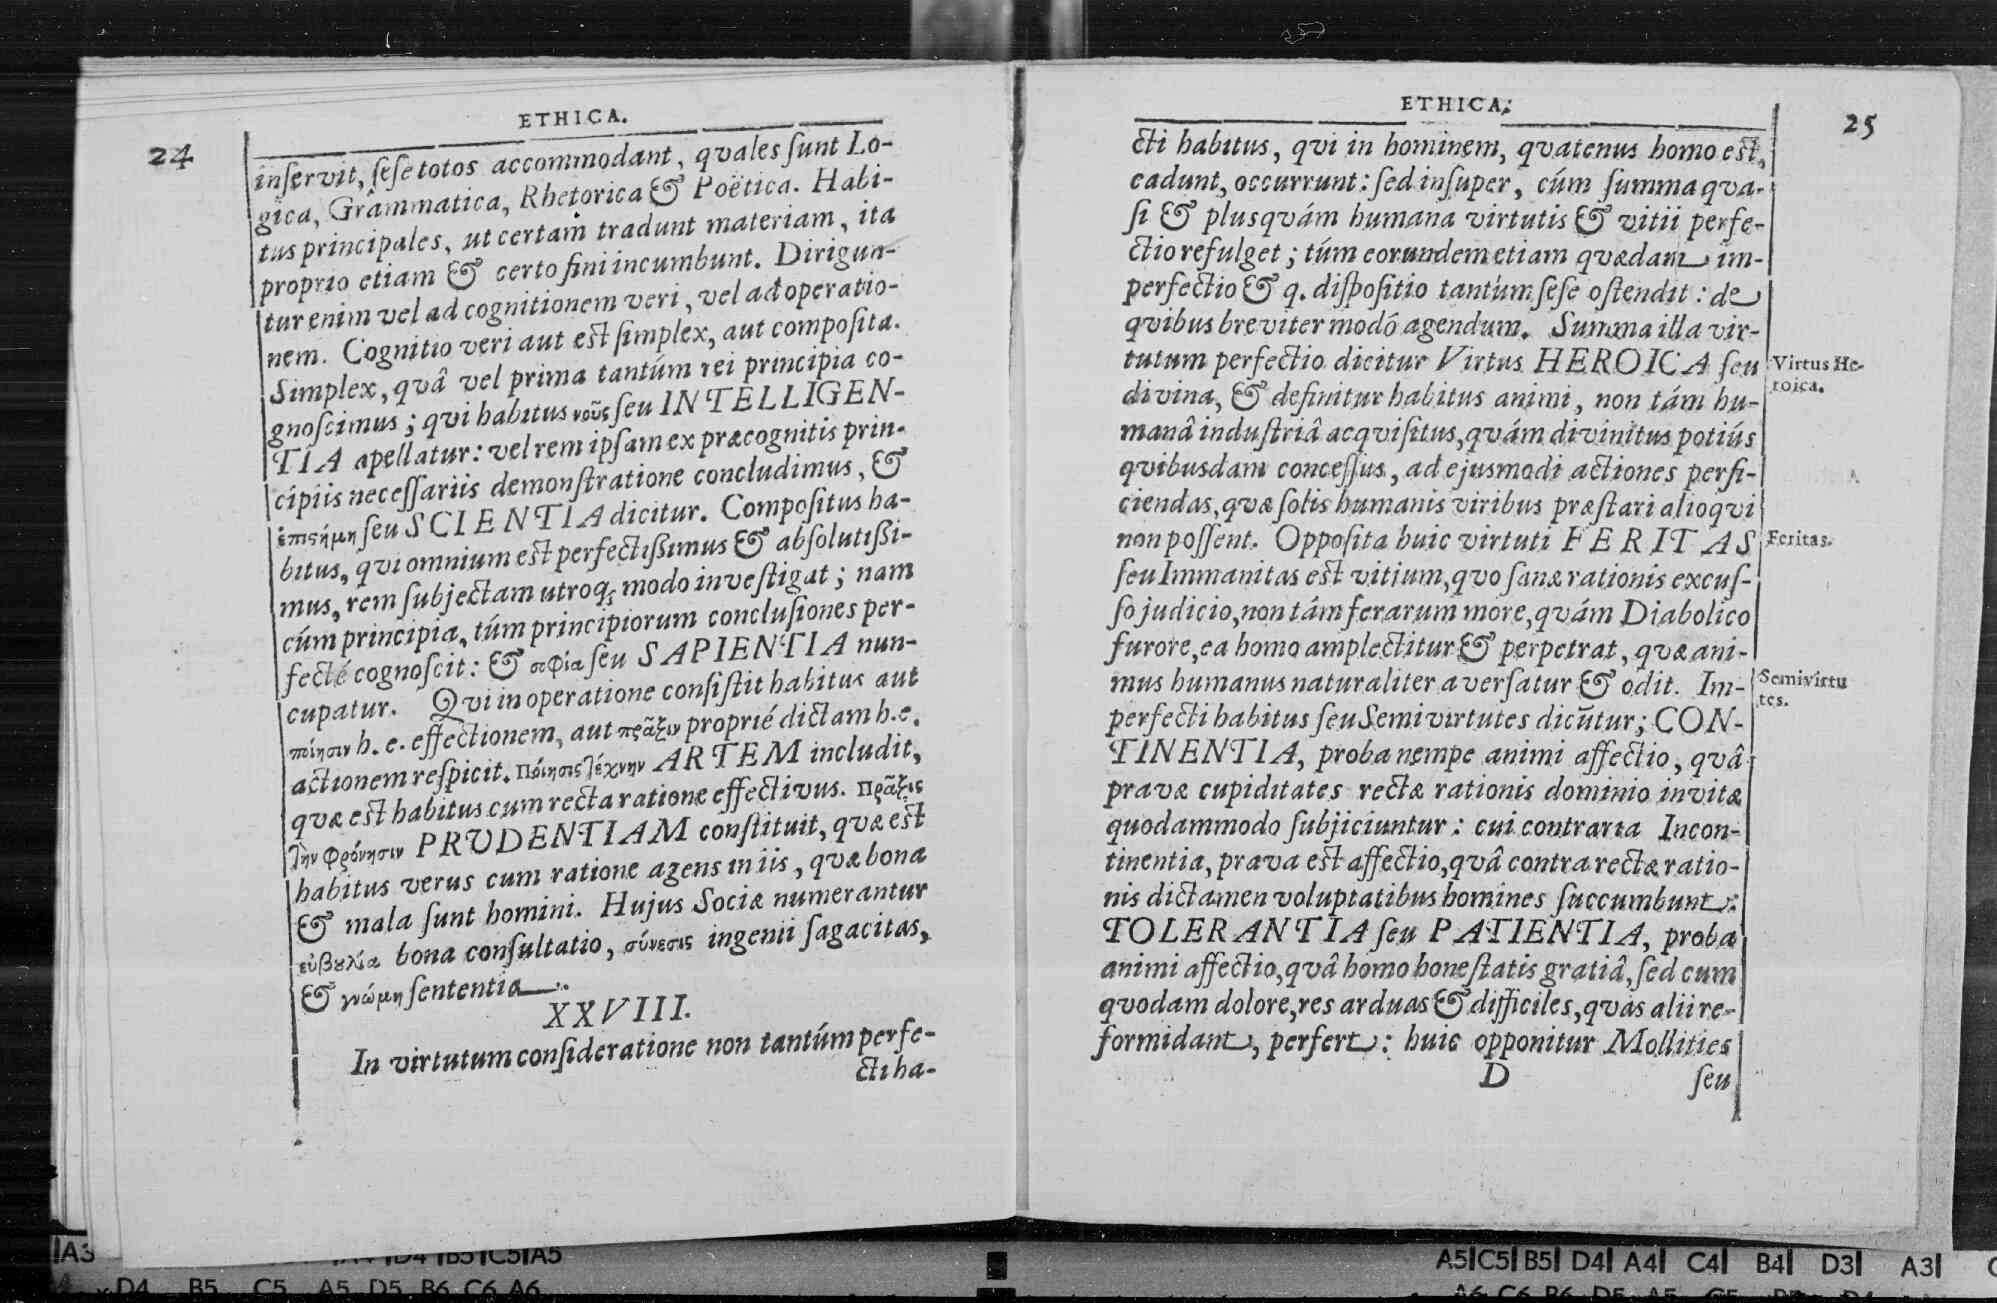 24
ETHICA.
inſervit, ſeſe totos accommodant, qvales ſunt Lo-
gica, Grammatica, Rhetorica & Poëtica. Habi-
tus principales, ut certam tradunt materiam, ita
proprio etiam & certo fini incumbunt. Dirigun-
tur enim vel ad cognitionem veri, vel ad operatio-
nem. Cognitio veri aut eſt ſimplex, aut compoſita.
Simplex, qvâ vel prima tantúm rei principia co-
gnoſcimus; qvi habitus νοῦς ſeu INTELLIGEN-
TIA apellatur: vel rem ipſam ex præcognitis prin-
cipiis neceſſariis demonſtratione concludimus, &
ἐπιςήμη ſeu SCIENTIA dicitur. Compoſitus ha-
bitus, qvi omnium eſt perfectißimus & abſolutißi-
mus, rem ſubjectam utroq; modo inveſtigat; nam
cúm principia, túm principiorum concluſiones per-
fecté cognoſcit: & σοφία ſeu SAPIENTIA nun-
cupatur. Qvi in operatione conſiſtit habitus aut
ποίησιν h. e. effectionem, aut πρᾶξιν proprié dictam h. e.
actionem reſpicit. Πόιησις τέχνην ARTEM includit,
qvæ eſt habitus cum recta ratione effectivus. Πρᾶξις
τὴν φρόνησιν PRUDENTIAM conſtituit, qvæ eſt
habitus verus cum ratione agens in iis, qvæ bona
& mala ſunt homini. Hujus Sociæ numerantur
εὐβȣλία bona conſultatio, σύνεσις ingenii ſagacitas,
& γνώμη ſententia.
XXVIII.
In virtutum conſideratione non tantúm perfe-
cti ha-
ETHICA.
25
cti habitus, qvi in hominem, qvatenus homo eſt,
cadunt, occurrunt: ſed inſuper, cúm ſumma qva-
ſi & plusqvám humana virtutis & vitii perfe-
ctio refulget; túm eorundem etiam qvædam im-
perfectio & q. diſpoſitio tantúm ſeſe oſtendit: de
qvibus breviter modó agendum. Summa illa vir-
tutum perfectio dicitur Virtus HEROICA ſeu
Virtus He-
roica.
divina, & definitur habitus animi, non tám hu-
manâ induſtriâ acqviſitus, qvám divinitus potiús
qvibusdam conceſſus, ad ejusmodi actiones perfi-
ciendas, qvæ ſolis humanis viribus præſtari alioqvi
non poſſent. Oppoſita huic virtuti FERITAS
Feritas.
ſeu Immanitas eſt vitium, qvo ſanæ rationis excuſ-
ſo judicio, non tám ferarum more, qvám Diabolico
furore, ea homo amplectitur & perpetrat, qvæ ani-
mus humanus naturaliter averſatur & odit. Im-
Semivirtu
tes.
perfecti habitus ſeu Semivirtutes dicūtur; CON-
TINENTIA, proba nempe animi affectio, qvâ
pravæ cupiditates rectæ rationis dominio invitæ
quodammodo ſubjiciuntur: cui contraria Incon-
tinentia, prava eſt affectio, qvâ contra rectæ ratio-
nis dictamen voluptatibus homines ſuccumbunt:
TOLERANTIA ſeu PATIENTIA, proba
animi affectio, qvâ homo honeſtatis gratiâ, ſed cum
quodam dolore, res arduas & difficiles, qvas alii re-
formidant, perfert: huic opponitur Mollities
D
ſeu
A3 A4 D4 B5 C5 A5
D4 B5 C5 A5 D5 B6 C6 A6
A5 C5 B5 D4 A4 C4 B4 D3 A3
A6 C6 B6 D5 A5 C5 B5 D4